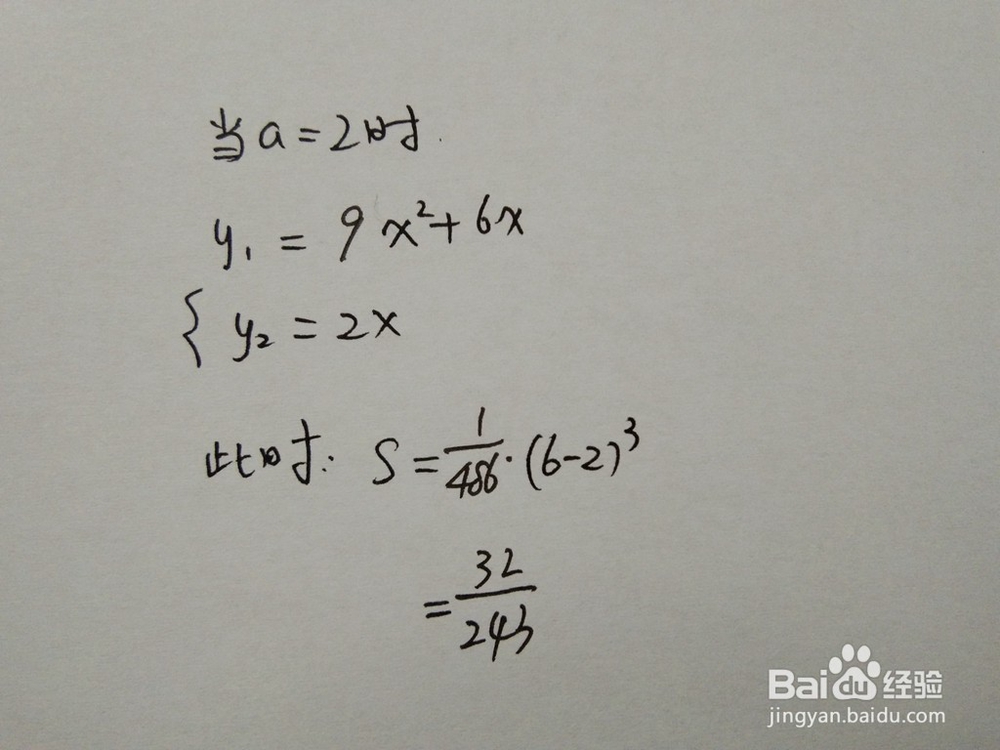 当a=2时.
y₁ = 9x²+6x
{ y₂ = 2x
此时: S = 1/486·(6-2)³
= 32/243
Baidu 经验
jingyan.baidu.com